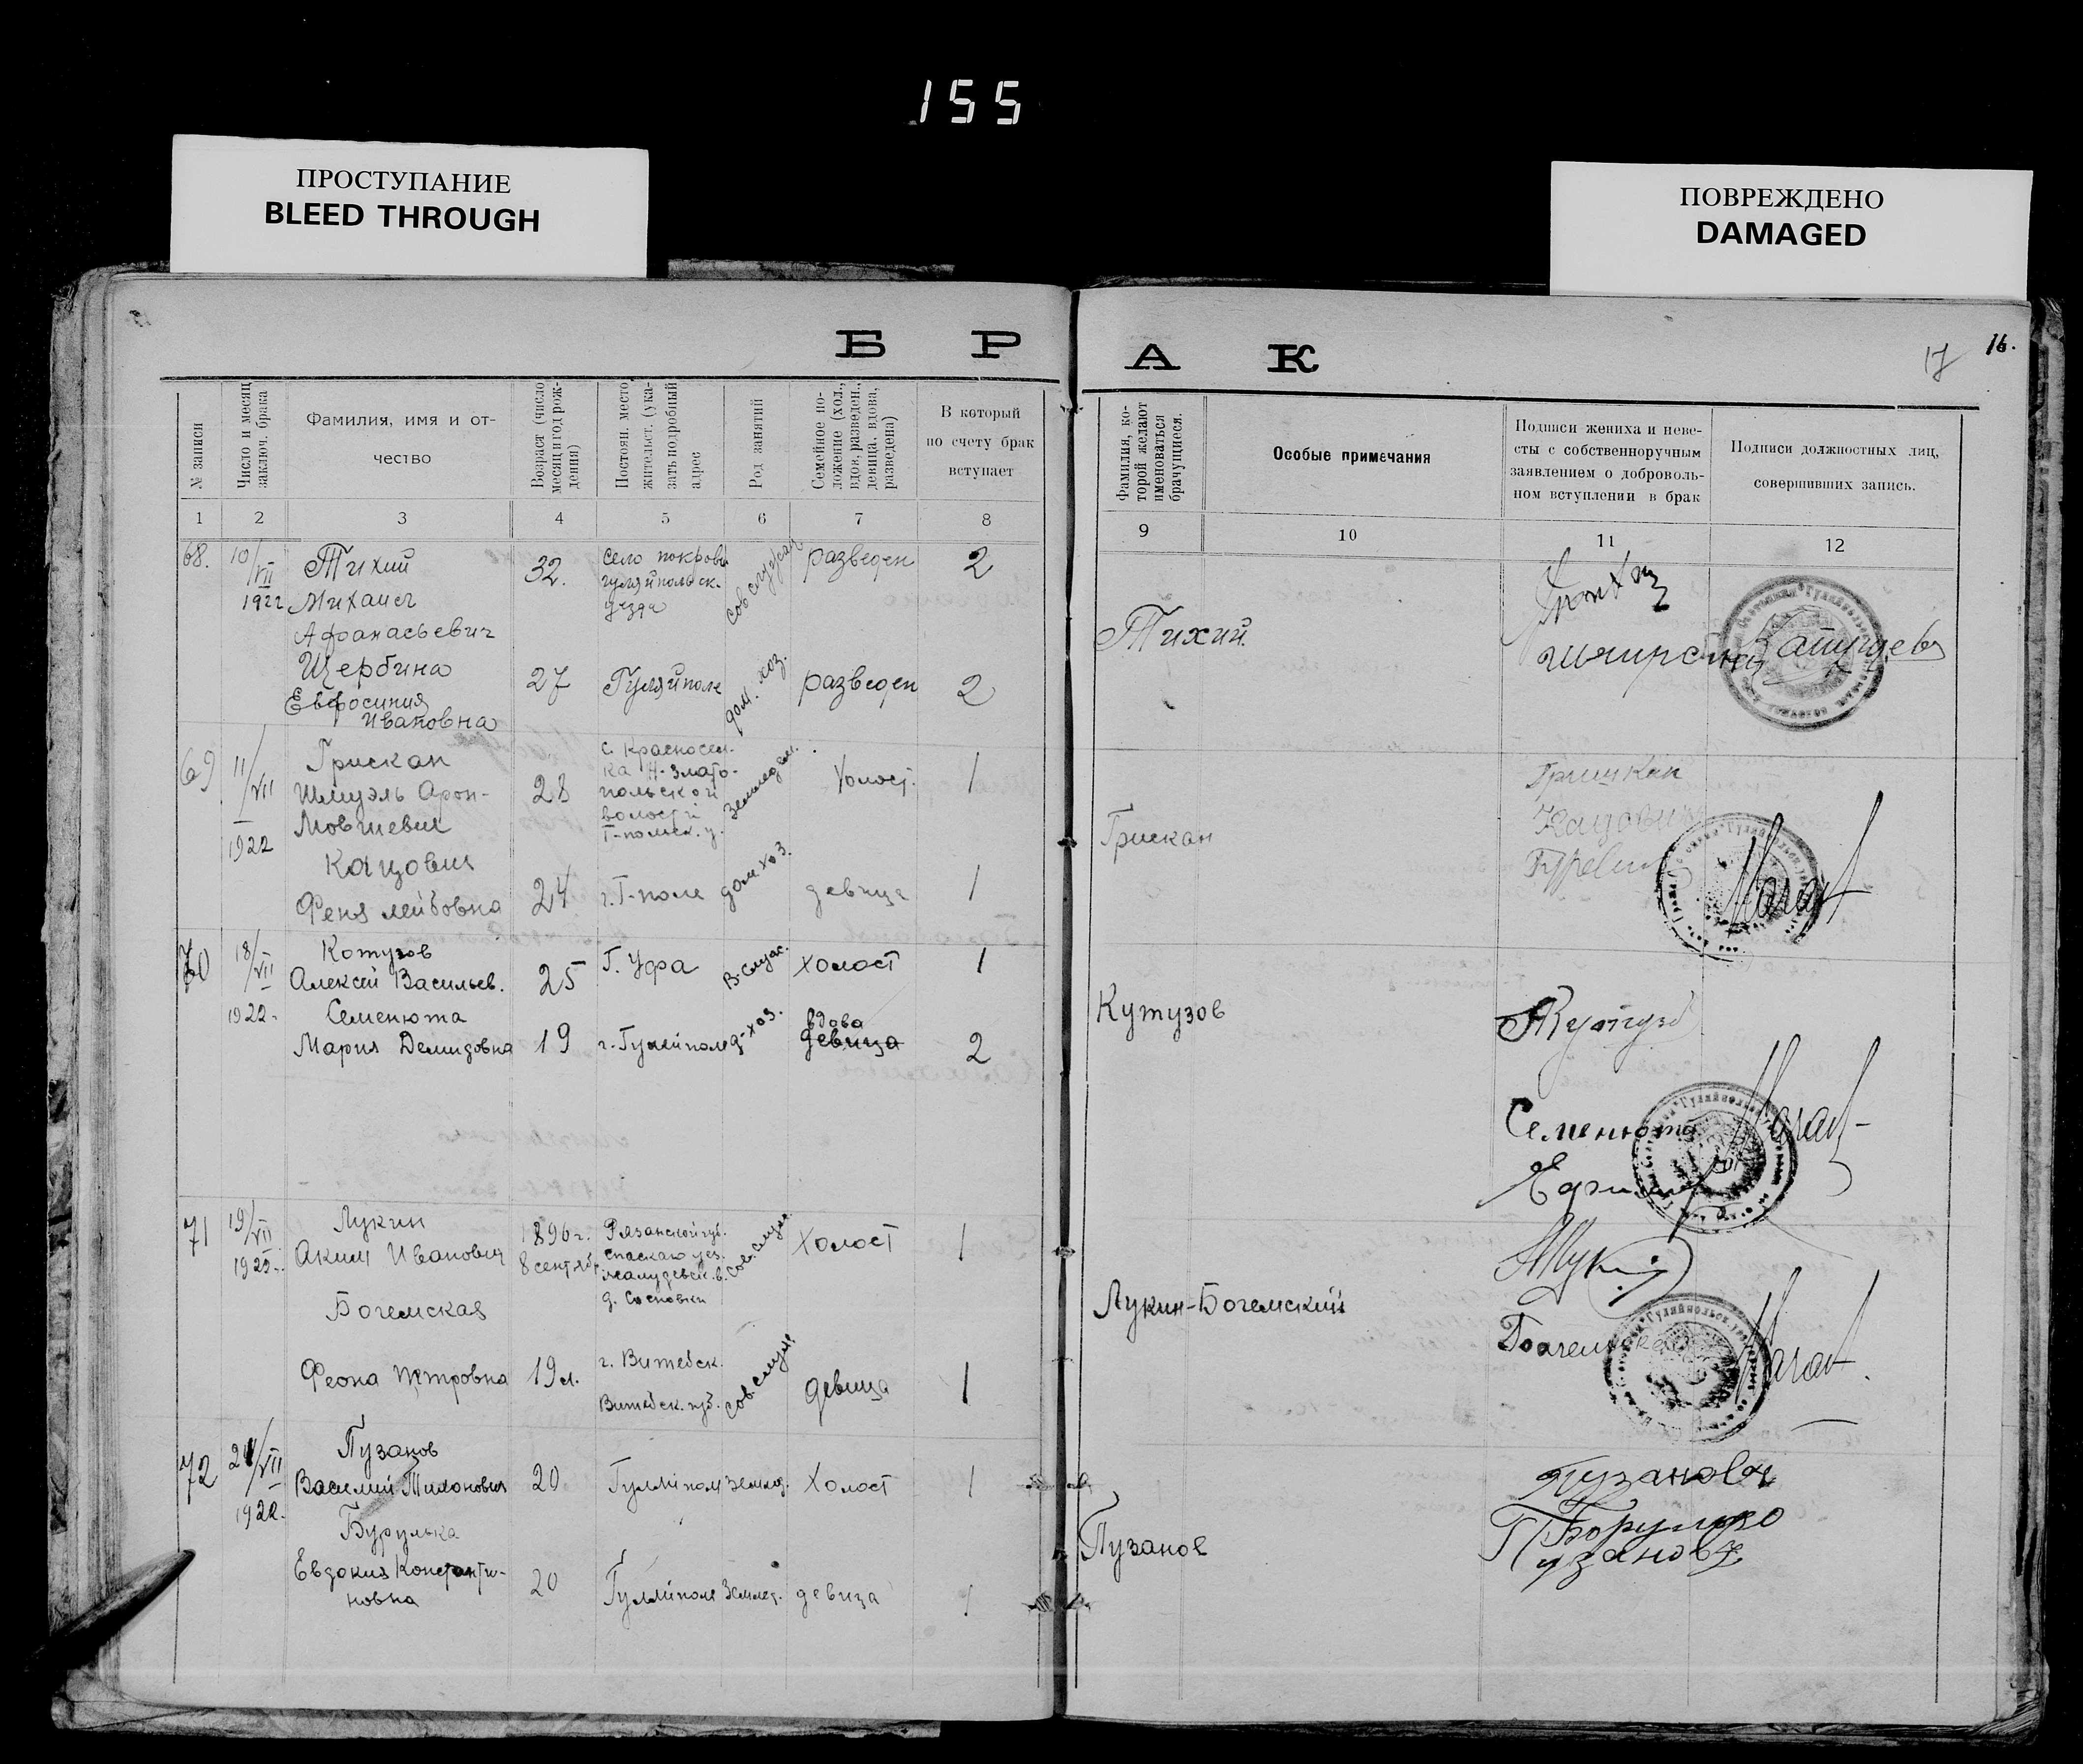 155
ПРОСТУПАНИЕ
BLEED THROUGH
ПОВРЕЖДЕНО
DAMAGED
Б Р А К
17 16.
№ записи
Число и месяц
заключ. брака
Фамилия, имя и от-
чество
Возраст (число
месяц и год рож-
дения)
Постоян. место
жительст. (ука-
зать подробный
адрес
Род занятий
Семейное по-
ложение (хол.,
вдов, разведен.,
девица, вдова,
разведена)
В который
по счету брак
вступает
Фамилия, ко-
торой желают
именоваться
брачущиеся.
Особые примечания
Подписи жениха и неве-
сты с собственноручным
заявлением о доброволь-
ном вступлении в брак
Подписи должностных лиц,
совершивших запись.
1 2 3 4 5 6 7 8 9 10 11 12
68. 10/VII
1922
Тихий
Михаил
Афанасьевич
32.
село покров
гуляйпольск.
уезда
сов служащ
разведен
2
Щербина
Евфросиния
Ивановна
27
Гуляйполе
дом. хоз.
разведен
2
Тихий.
69 11/VII
1922
Грискан
Шмуэль Арон-
Мовшевич
28
с. Красносел-
ка Н-Злато-
польской
волости
Г-польск. у.
землед ел.
Холост.
1
Кацович
Феня Лейбовна
24
г. Г-поле
дом хоз.
девица
1
Грискан
Гришкан
Кацович
70 18/VII
1922.
Котузов
Алексей Васильев.
25
Г. Уфа
В. служ.
холост
1
Семенюта
Мария Демидовна
19
г. Гуляйполе
д-хоз.
вдова
девица
2
Кутузов
Семенюта
71 19/VII
1922.
Лукин
Аким Иванович
1896 г.
8 сентяб.
Рязанской губ.
спаскаго уез.
д. Сосновки
сов. служ.
Холост
1
Богемская
Феона Петровна
19 л.
г. Витебск.
Витебск. губ.
сов. служ.
девица
1
Лукин-Богемский
72 24/VII
1922.
Пузанов
Василий Тихонович
20
Гуляйполе
землед.
Холост
1
Бурулька
Евдокия Константи-
новна
20
Гуляйполе
Землед.
девица
1
Пузанов